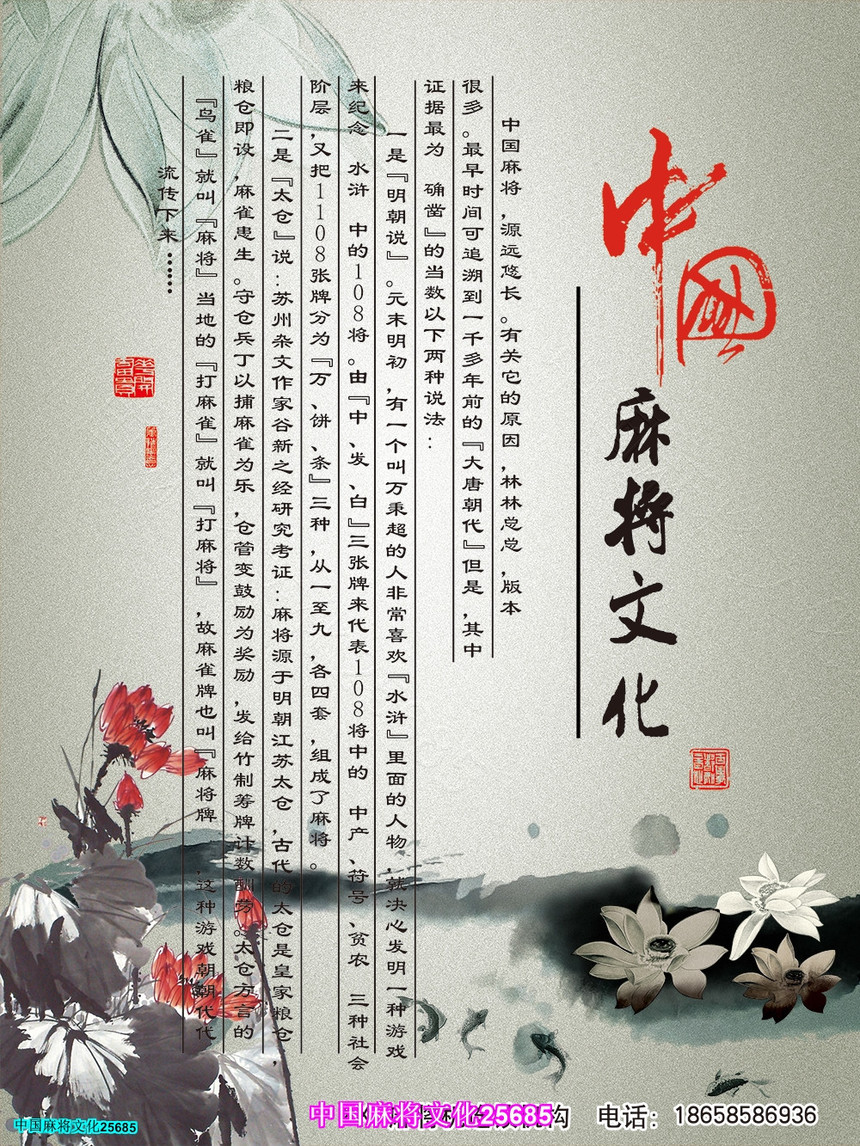 中国
麻将文化
中国麻将，源远悠长。有关它的原因，林林总总，版本
很多。最早时间可追溯到一千多年前的『大唐朝代』但是，其中
证据最为 确凿』的当数以下两种说法：
一是『明朝说』。元末明初，有一个叫万秉超的人非常喜欢『水浒』里面的人物，就决心发明一种游戏
来纪念 水浒 中的108将。由『中、发、白』三张牌来代表108将中的 中产、符号、贫农 三种社会
阶层，又把1108张牌分为『万、饼、条』三种，从一至九，各四套，组成了麻将。
二是『太仓』说：苏州杂文作家谷新之经研究考证：麻将源于明朝江苏太仓，古代的太仓是皇家粮仓，
粮仓即设，麻雀患生。守仓兵丁以捕麻雀为乐，仓管变鼓励为奖励，发给竹制筹牌计数酬劳。太仓方言的
『鸟雀』就叫『麻将』当地的『打麻雀』就叫『打麻将』，故麻雀牌也叫『麻将牌 这种游戏朝朝代代
流传下来……
中国麻将文化25685
构 电话：18658586936
中国麻将文化25685